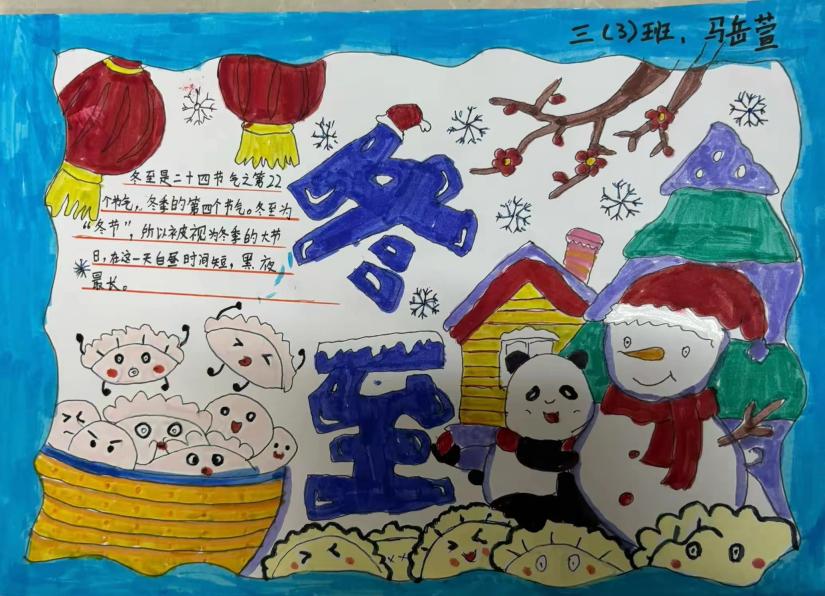 三(3)班、马岳萱
冬至是二十四节气之第22
个节气，冬季的第四个节气。冬至为
“冬节”，所以被视为冬季的大节
日，在这一天白昼时间短，黑夜
最长。
冬
至